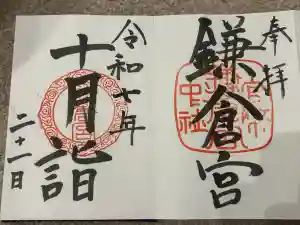 奉拝
鎌倉宮
令和七年
十月詣
二十一日